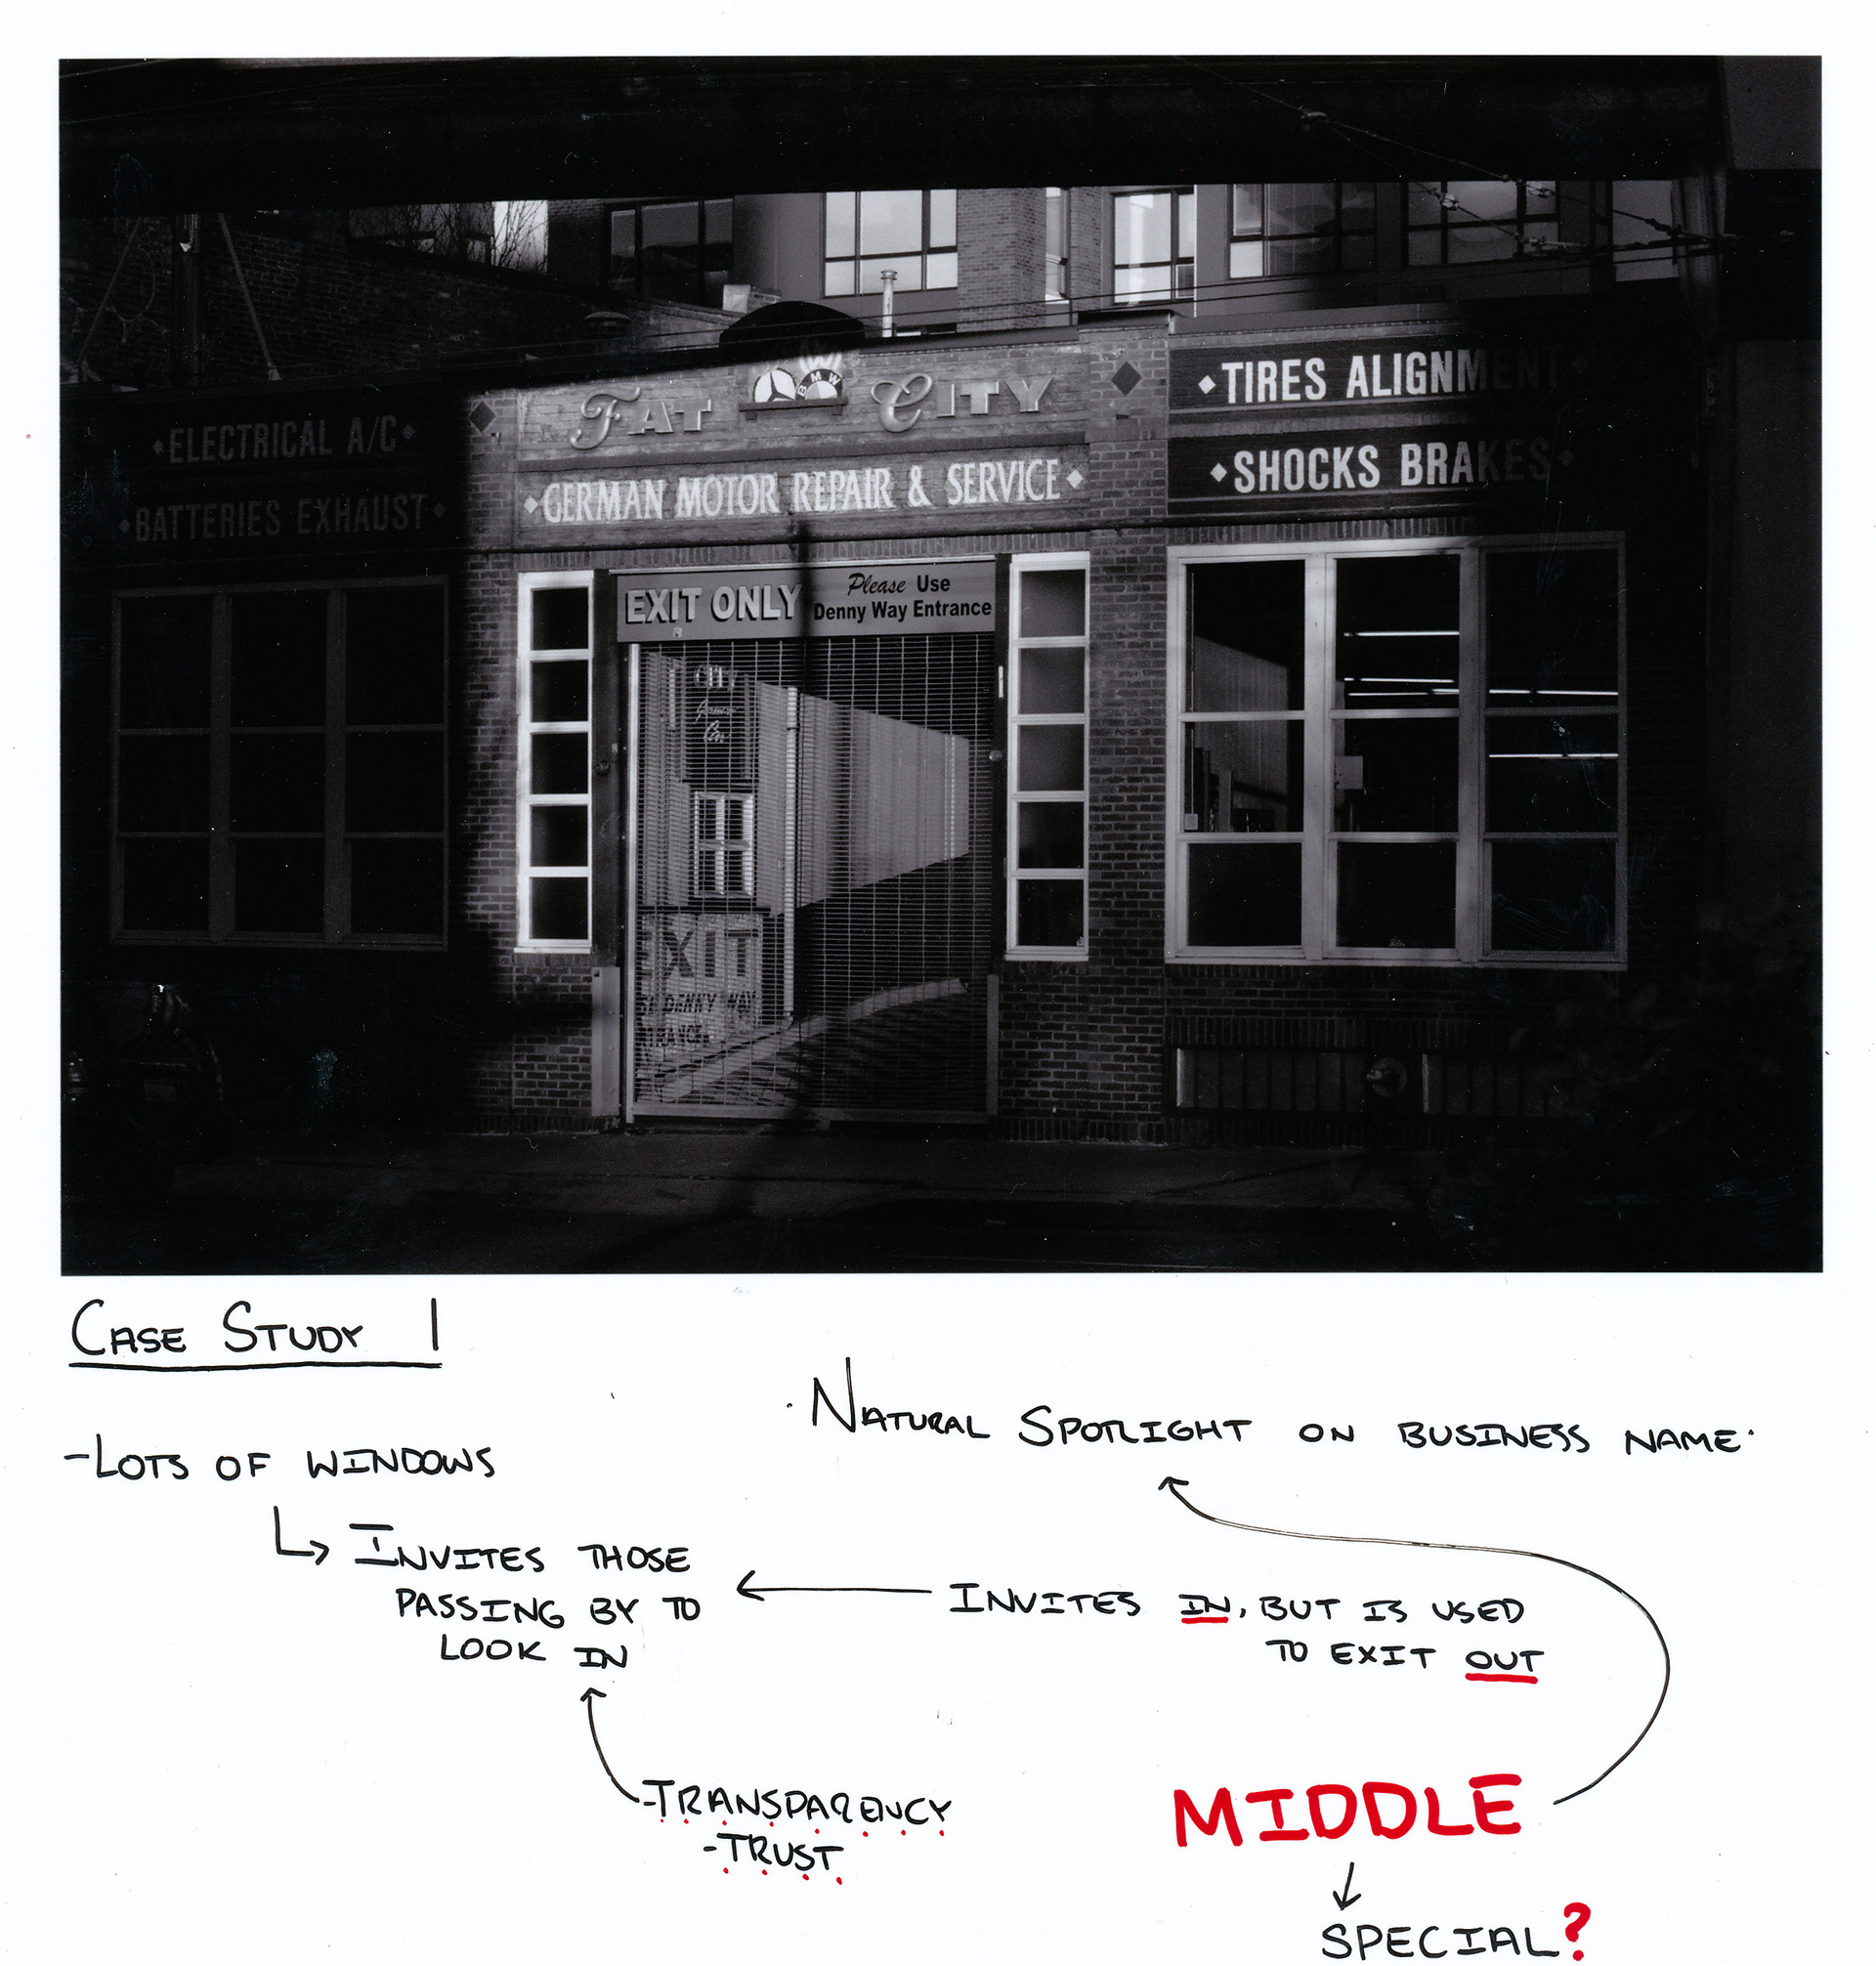 FAT CITY
BMW
GERMAN MOTOR REPAIR & SERVICE
ELECTRICAL A/C
BATTERIES EXHAUST
TIRES ALIGNMENT
SHOCKS BRAKES
EXIT ONLY
Please Use
Denny Way Entrance
CITY
EXIT
DENNY WAY
CASE STUDY 1
-LOTS OF WINDOWS
INVITES THOSE
PASSING BY TO
LOOK IN
· NATURAL SPOTLIGHT ON BUSINESS NAME·
INVITES IN, BUT IS USED
TO EXIT OUT
-TRANSPARENCY
-TRUST
MIDDLE
SPECIAL?